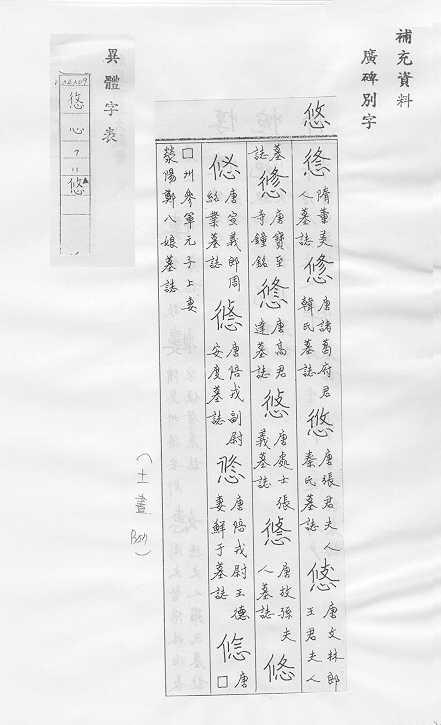 補充資料
廣碑別字
悠
悠 隋董美人墓誌 悠 唐諸葛府君韓氏墓誌 悠 唐張君夫人秦氏墓誌 悠 唐文林郎王君夫人
墓誌 悠 唐寶室寺鐘銘 悠 唐高君達墓誌 悠 唐處士張義墓誌 悠 唐故孫夫人墓誌 悠
唐宣義郎周紹業墓誌 悠 唐陪戎副尉安度墓誌 悠 唐陪戎尉王德妻鮮于墓誌 悠 唐□
□州參軍元子上妻滎陽鄭八娘墓誌
異體字表
悠
心
7
11
悠